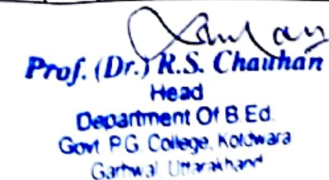 Prof. (Dr.) R.S. Chauhan
Head
Department Of B.Ed.
Govt. P.G. College, Kotdwara
Garhwal Uttarakhand